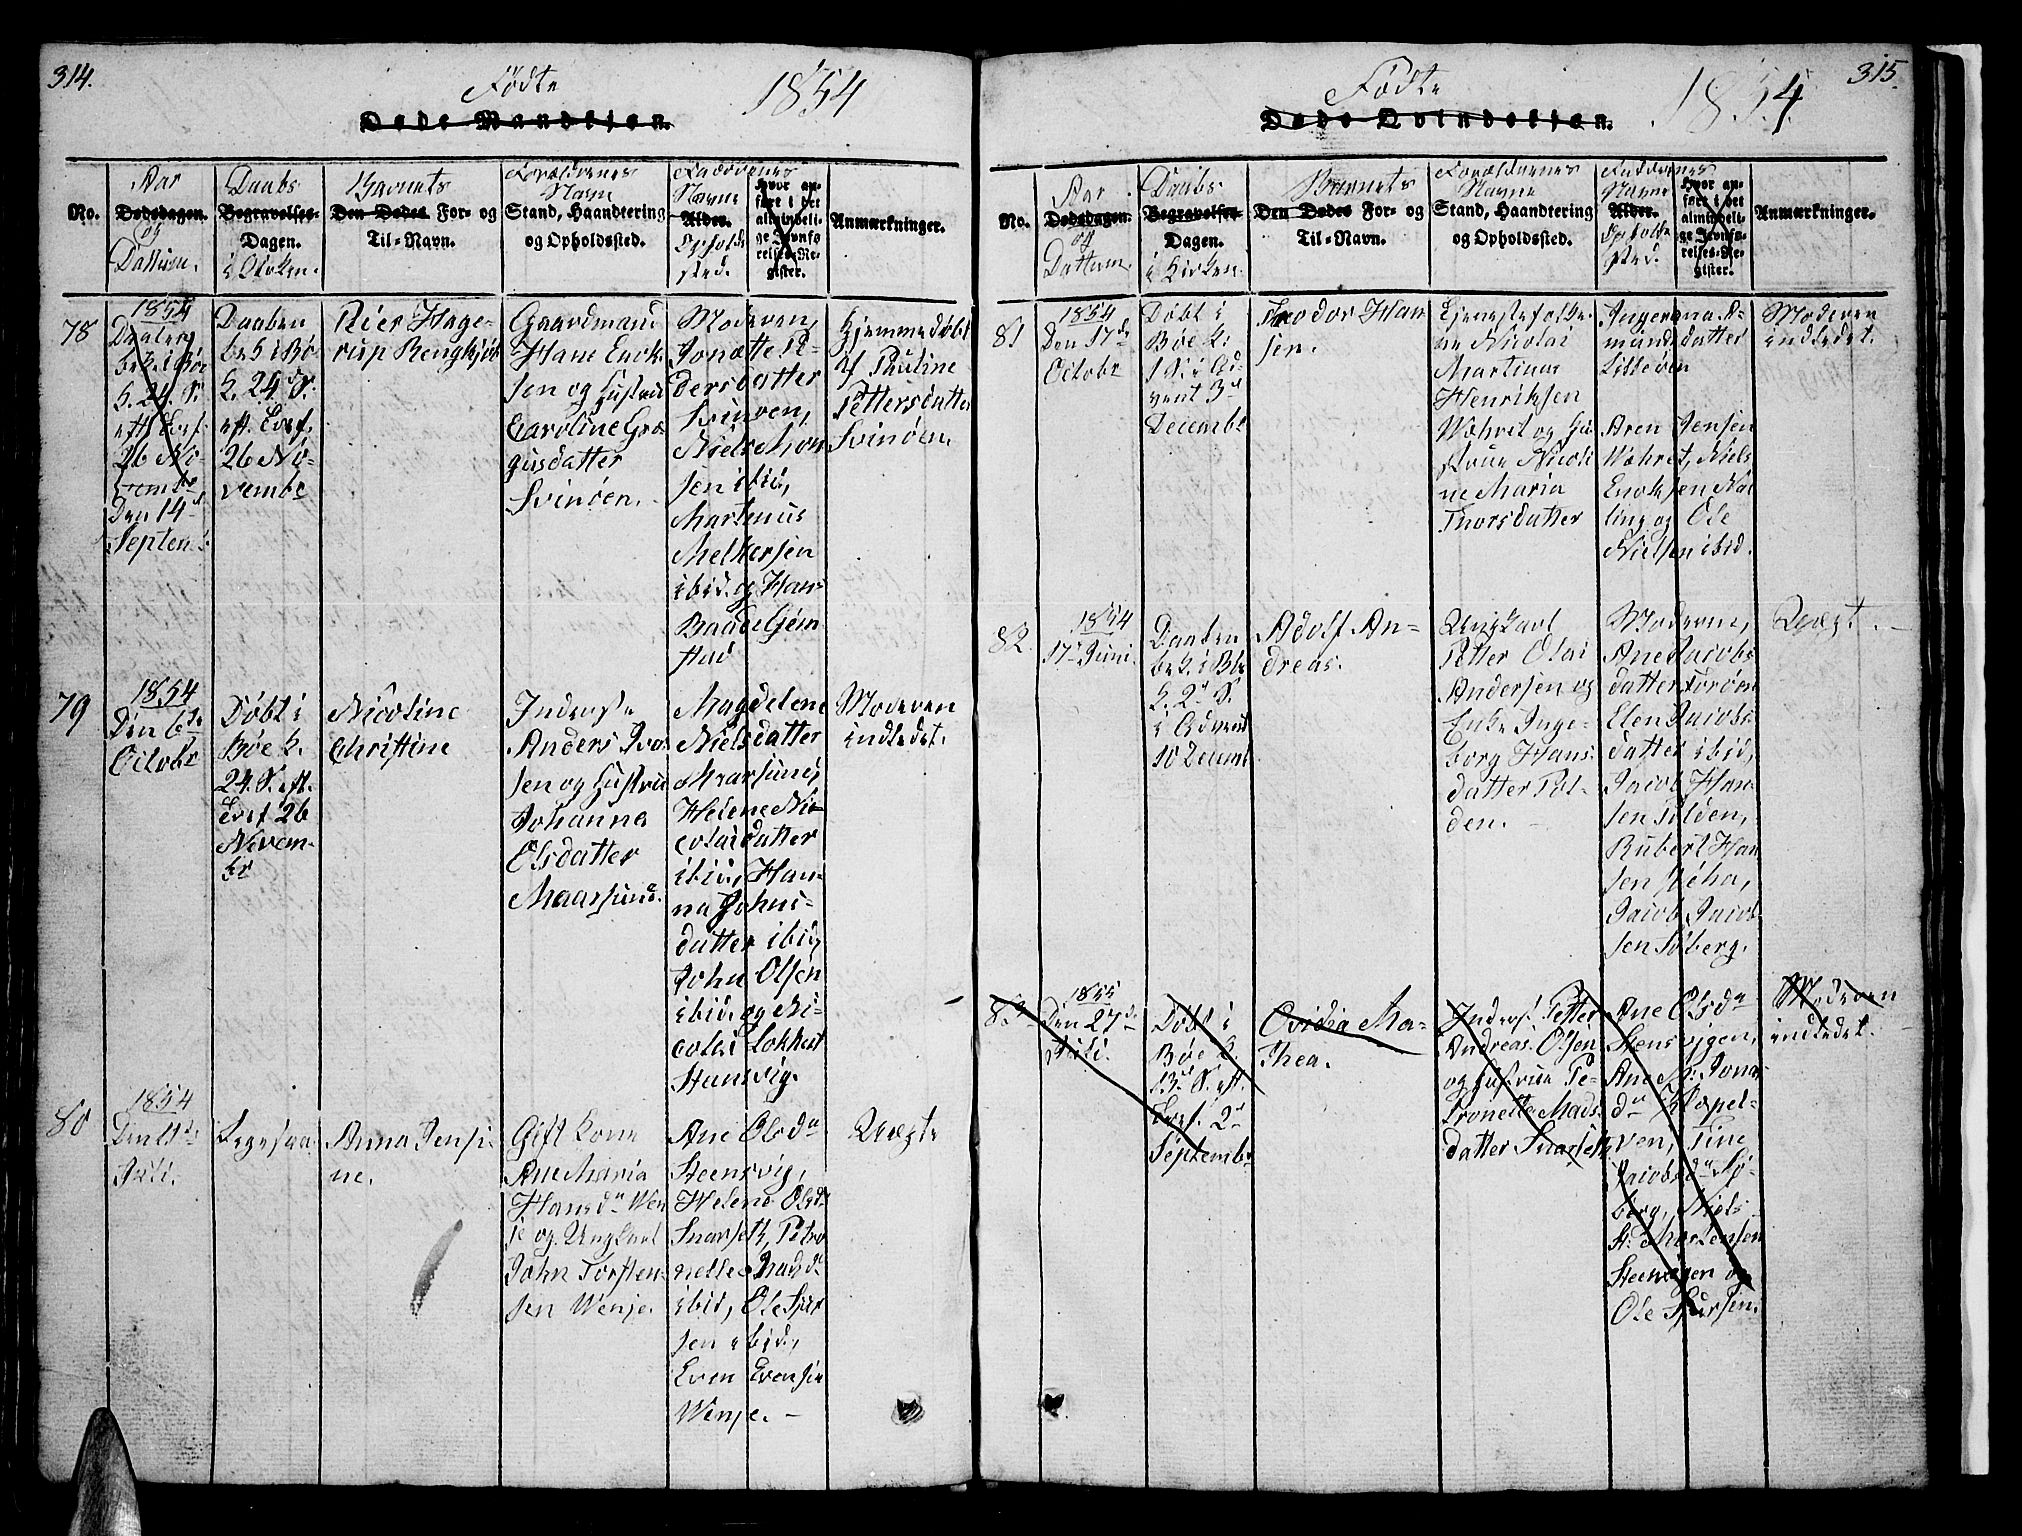 314.
Fødte
1854
Døde Mandkjøn.
No.
Aar
Dødsdagen.
og
Dattum.
Daabs
Begravelses-
Dagen.
i Kirken.
Barnets
Den Dødes For- og
Til-Navn.
Forældrenes
Navn
Stand, Haandtering
og Opholdssted.
Faddrenes
Navne
Alder.
Opholds
sted.
Hvor an-
ført i det
almindeli-
ge Jevnfø-
relses-Re-
gister.
Anmærkninger.
78
1854
Daaben
bek. i Bøe
K. 24. S.
eft. Tref.
26 No-
vembr
Den 14d
Septem
Daaben
bek i Bø-
K. 24d S.
eft. Tref.
26 No-
vembr
Peter Hage-
rup Rengkjøb
Gaardmand
Hans Enok-
sen og Hustrue
Caroline Gre-
gusdatter
Svinøen.
Moderen,
Jonette Pe-
dersdatter
Svinøen,
Niels Mon
sen ibid,
Martinus
Melkersen
ibid. og Hans
Baade Gjem-
stad
Hjemmedøbt
af Pauline
Pettersdatter
Svinøen.
79
1854
Den 6te
Octobr
Døbt i
Bøe K.
24. S. eft.
Tref 26
Novem-
br
Nicoline
Christine
Inderst
Anders Ivar
sen og Hustrue
Johanna
Olsdatter
Maarsund.
Magdelene
Nielsdatter
Maarsund,
Helene Ni-
colaidatter
ibid, Han-
na Johns-
datter ibid,
John Olsen
ibid. og Ni-
colai Lokkert
Stensvig.
Moderen
indledet.
80
1854
Juli.
Anna Jensi-
ne.
Gift Kone
Ane Maria
Hansdr Wen
je og Ungkarl
John Torsten-
sen Wenje.
Ane Olsdr
Steensvig,
Helene Olsdr
Snarset, Petro
nelle Madsdr
ibid, Ole Sjur
sen ibid,
Even Evensen
Wenje. —
Uægte
315.
Fødte
1854
Døde Qvindekjøn.
No.
Aar
Dødsdagen.
og
Dattum.
Daabs
Begravelses-
Dagen.
i Kirken.
Barnets
Den Dødes For- og
Til-Navn.
Forældrenes
Navne
Stand, Haandtering
og Opholdssted.
Faddrenes
Navne
Alder.
Opholds
sted.
Hvor an-
ført i det
almindeli-
ge Jevnfø-
relses-Re-
gister.
Anmærkninger.
81
1854
Den 17de
Octobr
Døbt i
Bøe K.
1 S. i Ad-
vent 3d
Decembr
Teodor Han
sen.
Tjenestefolke-
ne Nicolai
Martinus
Henriksen
Wahret og Hu
strue Nicoli
ne Maria
Thorsdatter
Ingerana A-
mundsdatter
Lilleøen
Aren Jensen
Wahret, Niels
Enoksen
ling og Ole
Nielsen ibid.
Moderen
indledet.
82.
1854
17d Juni.
Daaben
bek. i Bøe
K. 2d S.
i Advent
10 Decemb
Adolf An-
dreas.
Ungkarl
Petter Olai
Andersen og
Enke Inge-
borg Hans-
datter Tol-
den.
Moderen,
Ane Jacobs
datter Forøen
Elen Jacobs
datter ibid,
Jacob Han
sen Tolden,
Rubert Han
sen
Jacob Jacob-
sen Søberg.
Uægt. —
83
1855
Den 27d
Juli.
Døbt i
Bøe K.
13d S. eft.
Tref. 2d
Septembr
Ovidia Ma-
thea.
Inderst Petter
Andreas Olsen
og Hustrue Pe-
tronelle Mads
datter Snarset
Ane Olsdr
Stensvigen,
Ane M. Jonas
dr Klæpel-
ven, Tine
Jacobsdr Sø-
berg, Niels
St. Mortensen
Steensvigen og
Ole Sjursen.
Moderen
indledet.